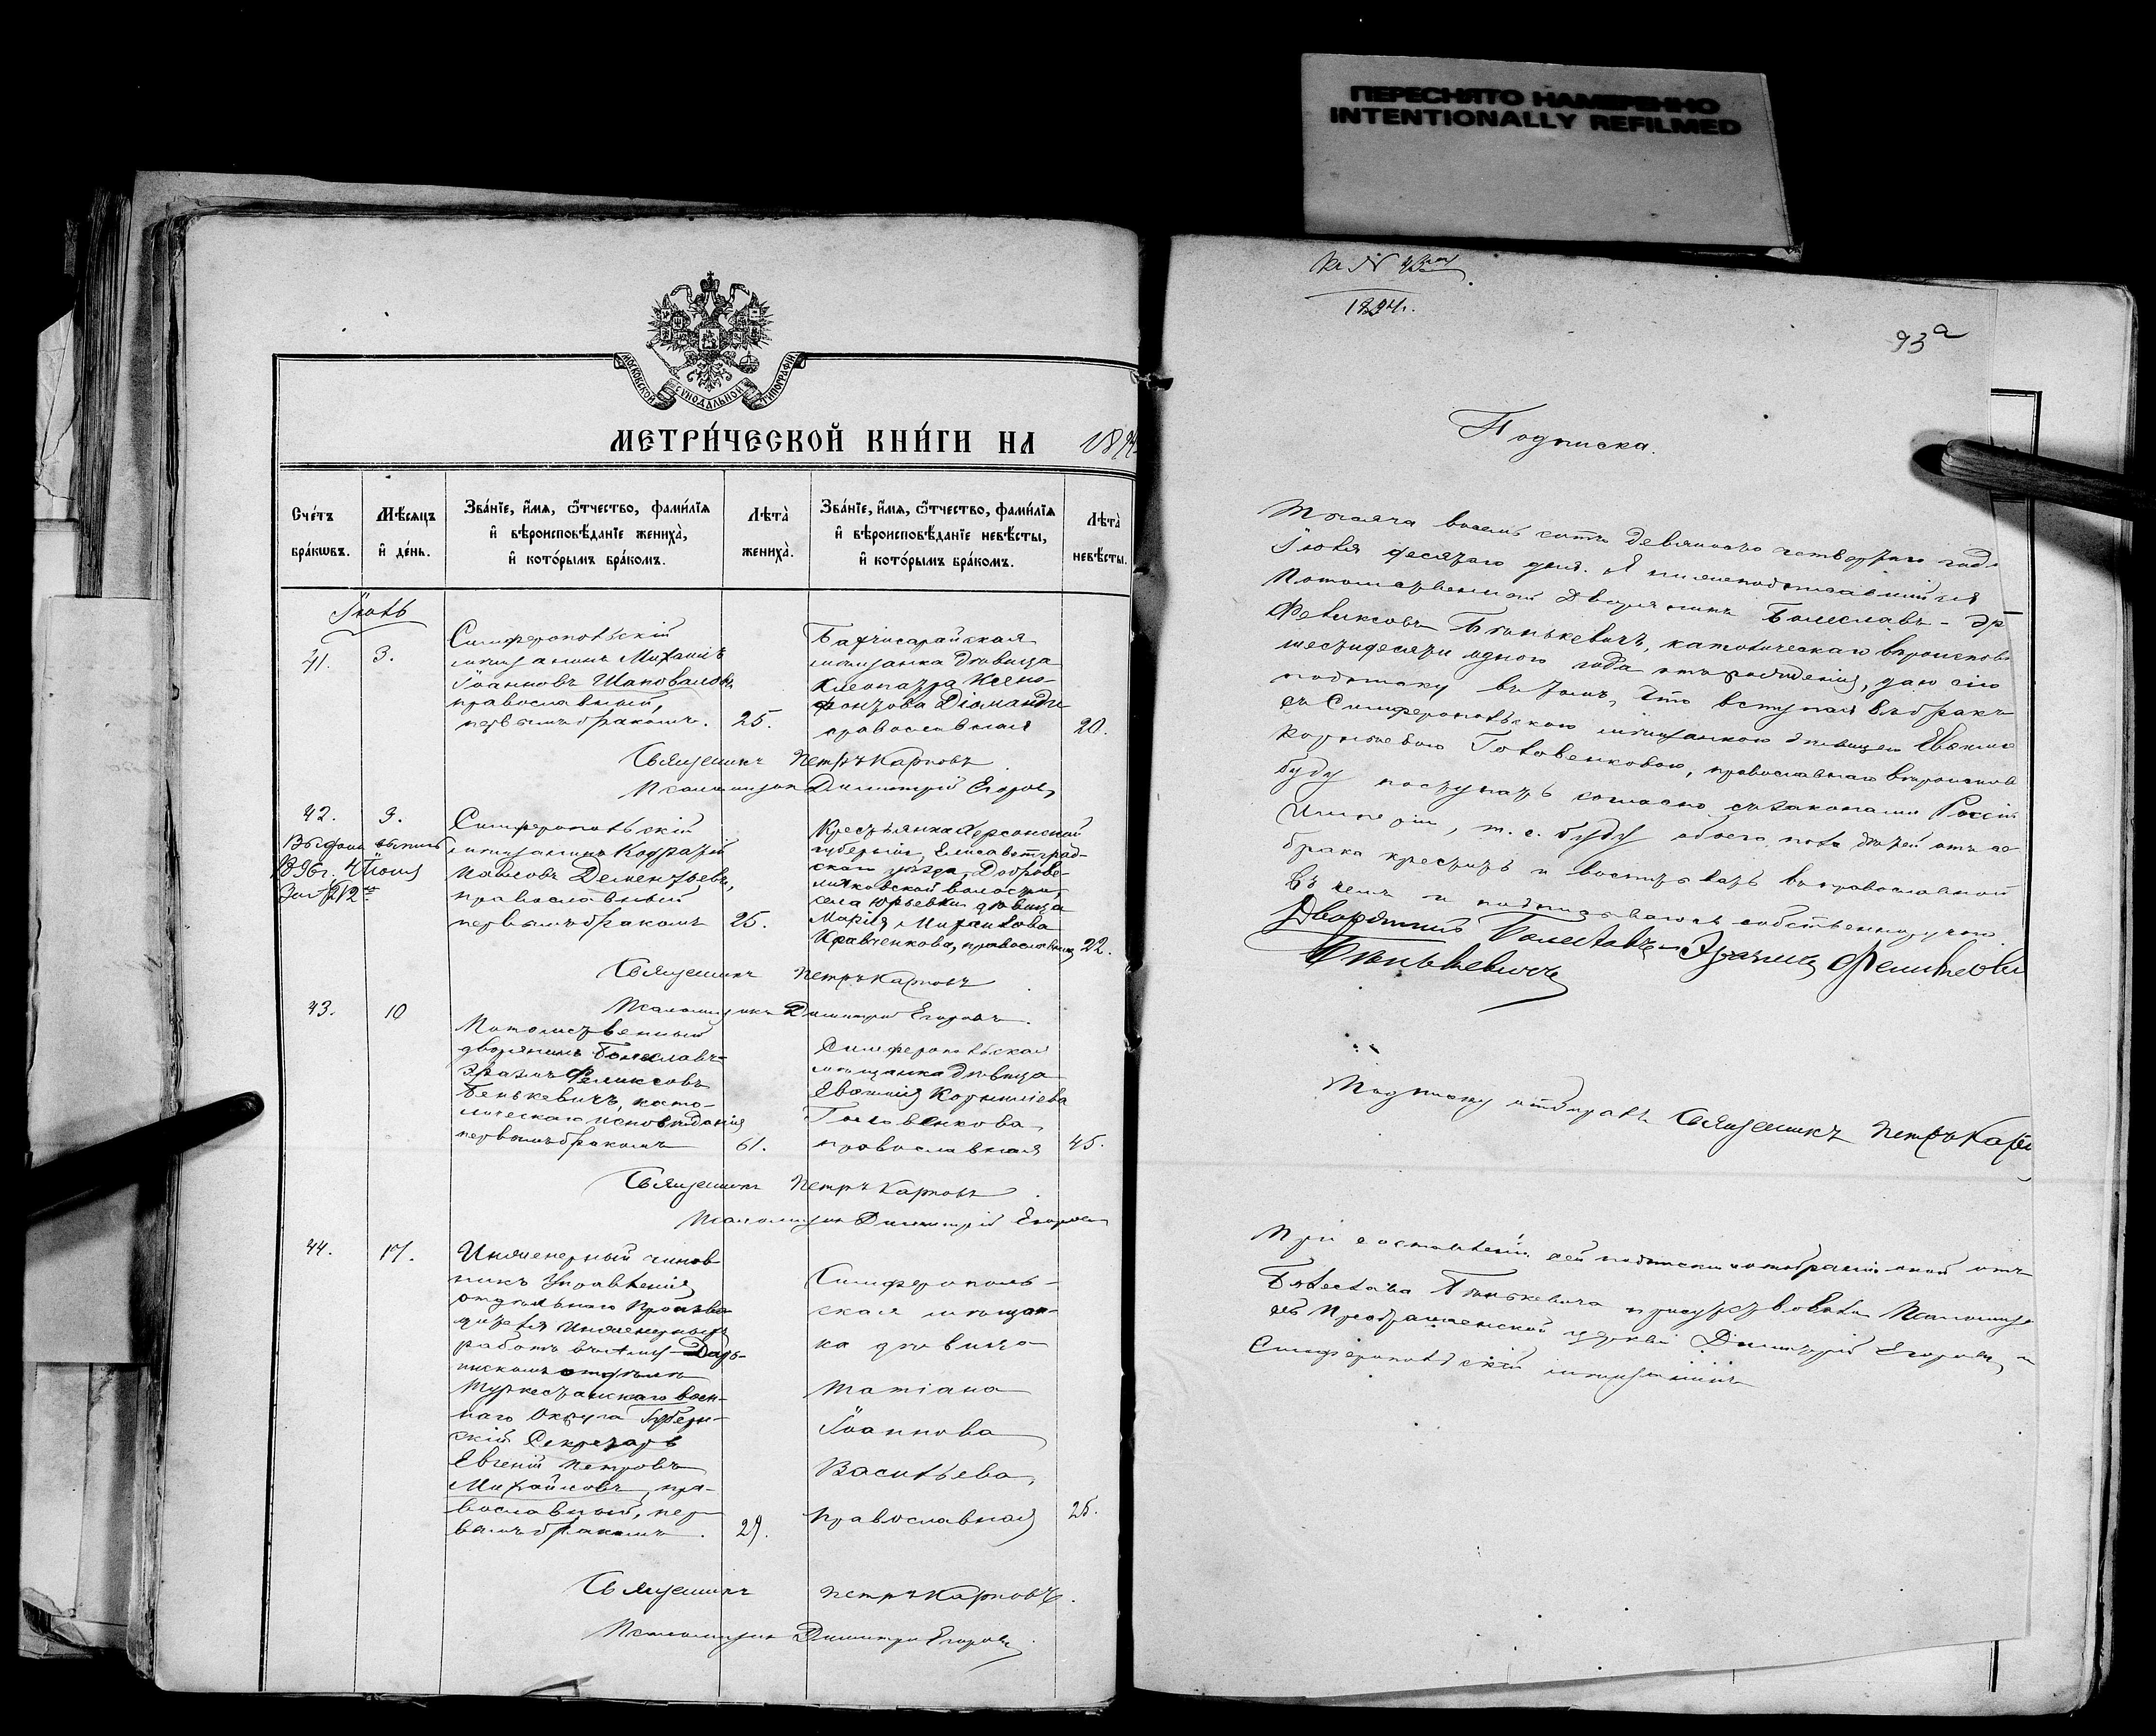 ПЕРЕСНЯТО НАМЕРЕННО
INTENTIONALLY REFILMED
МОСКОВСКОЙ СѴНОДАЛЬНОЙ ТИПОГРАФІИ
МЕТРИ́ЧЕСКОЙ КНИ́ГИ НА 1894
Сче́тъ бра́кωвъ.
Мѣ́сяцъ и҆ де́нь.
Зва́нїе, и҆́мя, ѻ҆́тчество, фами́лїя и҆ вѣроисповѣ́данїе жениха̀, и҆ кото́рымъ бра́комъ.
Лѣта̀ жениха̀.
Зва́нїе, и҆́мя, ѻ҆́тчество, фами́лїя и҆ вѣроисповѣ́данїе невѣ́сты, и҆ кото́рымъ бра́комъ.
Лѣта̀ невѣ́сты.
Іюнь
41.
3.
Симферопольскій
мѣщанинъ Михаилъ
Іоанновъ Шаповаловъ
православный,
первымъ бракомъ.
25.
Бахчисарайская
мѣщанка дѣвица
Клеопатра Ксено-
фонтова Діоманди
православная
20.
Священникъ Петръ Карповъ
Псаломщикъ Димитрій Егоровъ
42.
3.
Выдана выпись
4 Іюня
Симферопольскій
мѣщанинъ Кодратій
Павловъ Дементьевъ,
православный
первымъ бракомъ
25.
Крестьянка Херсонской
губерніи, Елисаветград-
скаго уѣзда, Доброве-
личковской волости,
села Юрьевки дѣвица
Марія Михаилова
Кравченкова, православная
22.
Священникъ Петръ Карповъ
Псаломщикъ Димитрій Егоровъ.
43.
10
Потомственный
дворянинъ Болеславъ-
Эразмъ Феликсовъ
Бенькевичъ, като-
лическаго исповѣданія
первымъ бракомъ
61.
Симферопольская
мѣщанка дѣвица
Евфимія Корниліева
Головенкова,
православная
45.
Священникъ Петръ Карповъ
Псаломщикъ Димитрій Егоровъ
44.
17.
Инженерный чинов-
никъ Управленія
отдѣльнаго Произво-
дителя Инженерныхъ
работъ въ Аму-Дарь-
инскомъ отдѣлѣ
Туркестанскаго воен-
наго Округа Губерн-
скій Секретарь
Евгеній Петровъ
Михайловъ, пра-
вославный, пер-
вымъ бракомъ.
29.
Симферополь-
ская мѣщан-
ка дѣвица
Татіана
Іоаннова
Васильева,
православная
26.
Священникъ Петръ Карповъ.
Псаломщикъ Димитрій Егоровъ
Къ N 43
1894 г.
93 а
Подписка.
Тысяча восемь сотъ девяносто четвертаго года
Іюня десятаго дня. Я нижеподписавшійся
Потомственный Дворянинъ Болеславъ-Эр
Феликсовъ Бѣнькевичъ, католическаго вѣроисповѣ
шестидесяти одного года отъ рожденія, даю сію
подписку въ томъ, что вступая въ бракъ
съ Симферопольскою мѣщанкою дѣвицею Евфиміе
Корнѣевою Головенковою, православнаго вѣроисповѣ
буду поступать согласно съ законами Россій
Имперіи, т. е. буду обоего пола дѣтей отъ се
брака крестить и воспитывать въ православной
въ чемъ и подписываюсь собственноручно.
Дворянинъ Болеславъ-Эразмъ Феликсовъ
Бѣнькевичъ
Подписку отбиралъ Священникъ Петръ Карп
При составленіи сей подписки и отобраніи оной отъ
Болеслава Бѣнькевича присутствовали Псаломщ
Преображенской церкви Димитрій Егоровъ и
Симферопольскій мѣщанинъ